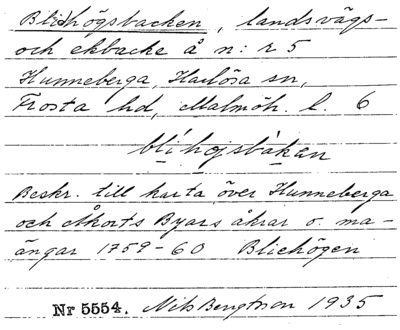 Bliehögsbacken, landsvägs-
och ekbacke å n:r 5
Hunneberga, Harlösa sn,
Frosta hd, Malmöh. l. 6
blihojsbakan
Beskr. till karta över Hunneberga
och Åkorts Byars åkrar o. ma-
ängar 1759-60 Bliehögen
Nr 5554. Nils Bengtson 1935